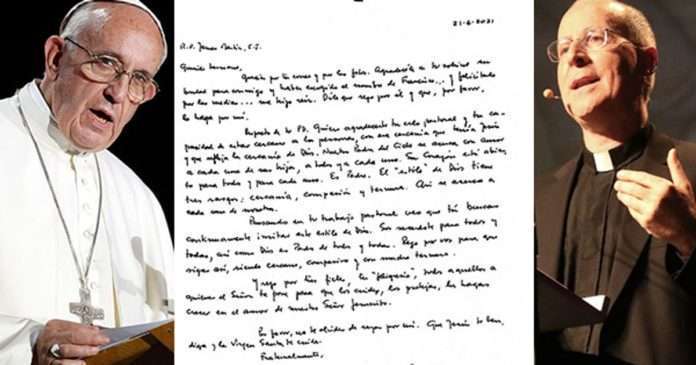 21-6-2021
R.P. James Martin, S.J.
Querido hermano,
Gracias por tu correo y por las fotos. Agradecele a tu sobrino su
bondad para conmigo y haber escogido el nombre de Francisco... y felicitalo
por las medias... me hizo reir. Dile que rezo por él y que, por favor,
lo haga por mí.
Respecto de tu PD. Quiero agradecerte tu celo pastoral y tu capa-
cidad de estar cercano a las personas, con esa cercanía que tenía Jesús
y que refleja la cercanía de Dios. Nuestro Padre del Cielo se acerca con amor
a cada uno de sus hijos, a todos y a cada uno. Su corazón está abier-
to para todos y para cada uno. Es Padre. El "estilo" de Dios tiene
tres rasgos: cercanía, compasión y ternura. Así se acerca a
cada uno de nosotros.
Pensando en tu trabajo pastoral veo que tú buscas
continuamente imitar este estilo de Dios. Sos sacerdote para todos y
todas, así como Dios es Padre de todos y todas. Rezo por vos para que
sigas así, siendo cercano, compasivo y con mucha ternura.
Y rezo por tus fieles, tus todos aquellos a
quienes el Señor te pone para que los cuides, los protejas, los hagas
crecer en el amor de nuestro Señor Jesucristo.
Por favor, no te olvides de rezar por mí. Que Jesús te ben-
diga y la Virgen Santa te cuide.
Fraternalmente,